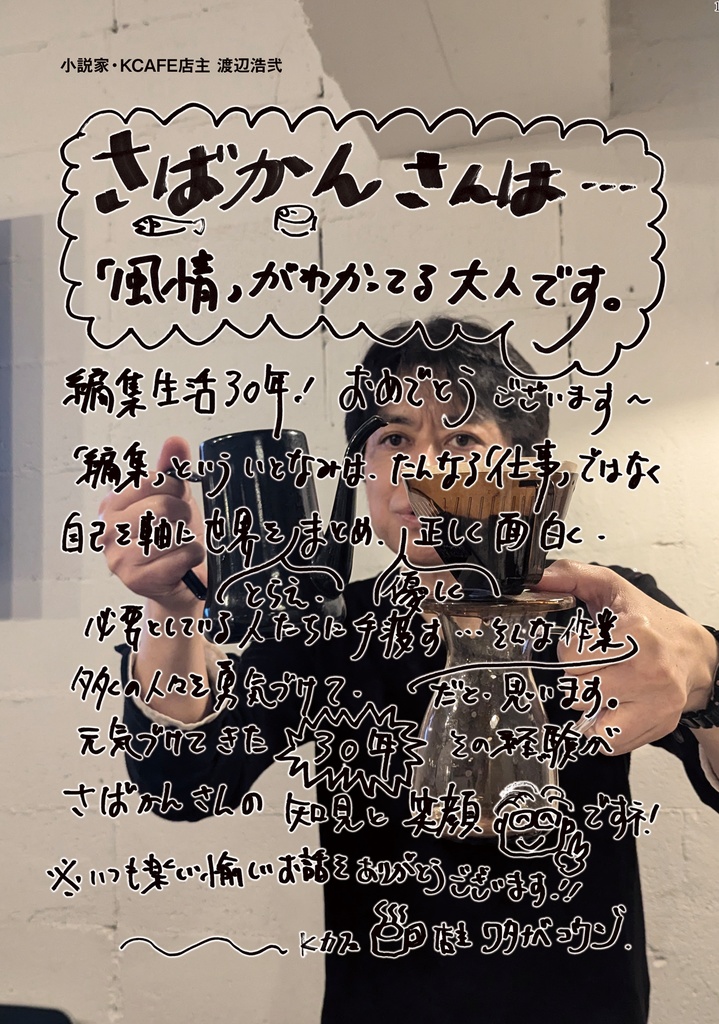 小説家・KCAFE店主 渡辺浩弐
さばかんさんは…
「風情」がわかってる大人です。
編集生活30年! おめでとうございます〜
「編集」といういとなみは、たんなる「仕事」ではなく
自己を軸に世界をとらえ、まとめ、正しく優しく面白く、
必要としている人たちに手渡す…そんな作業
だと、思います。
多くの人々を勇気づけて、
元気づけてきた30年 その経験が
さばかんさんの知見と笑顔ですネ!
※いつも楽しい愉しいお話をありがとうございます!!
Kカフェ 店主 ワタナベコウジ.